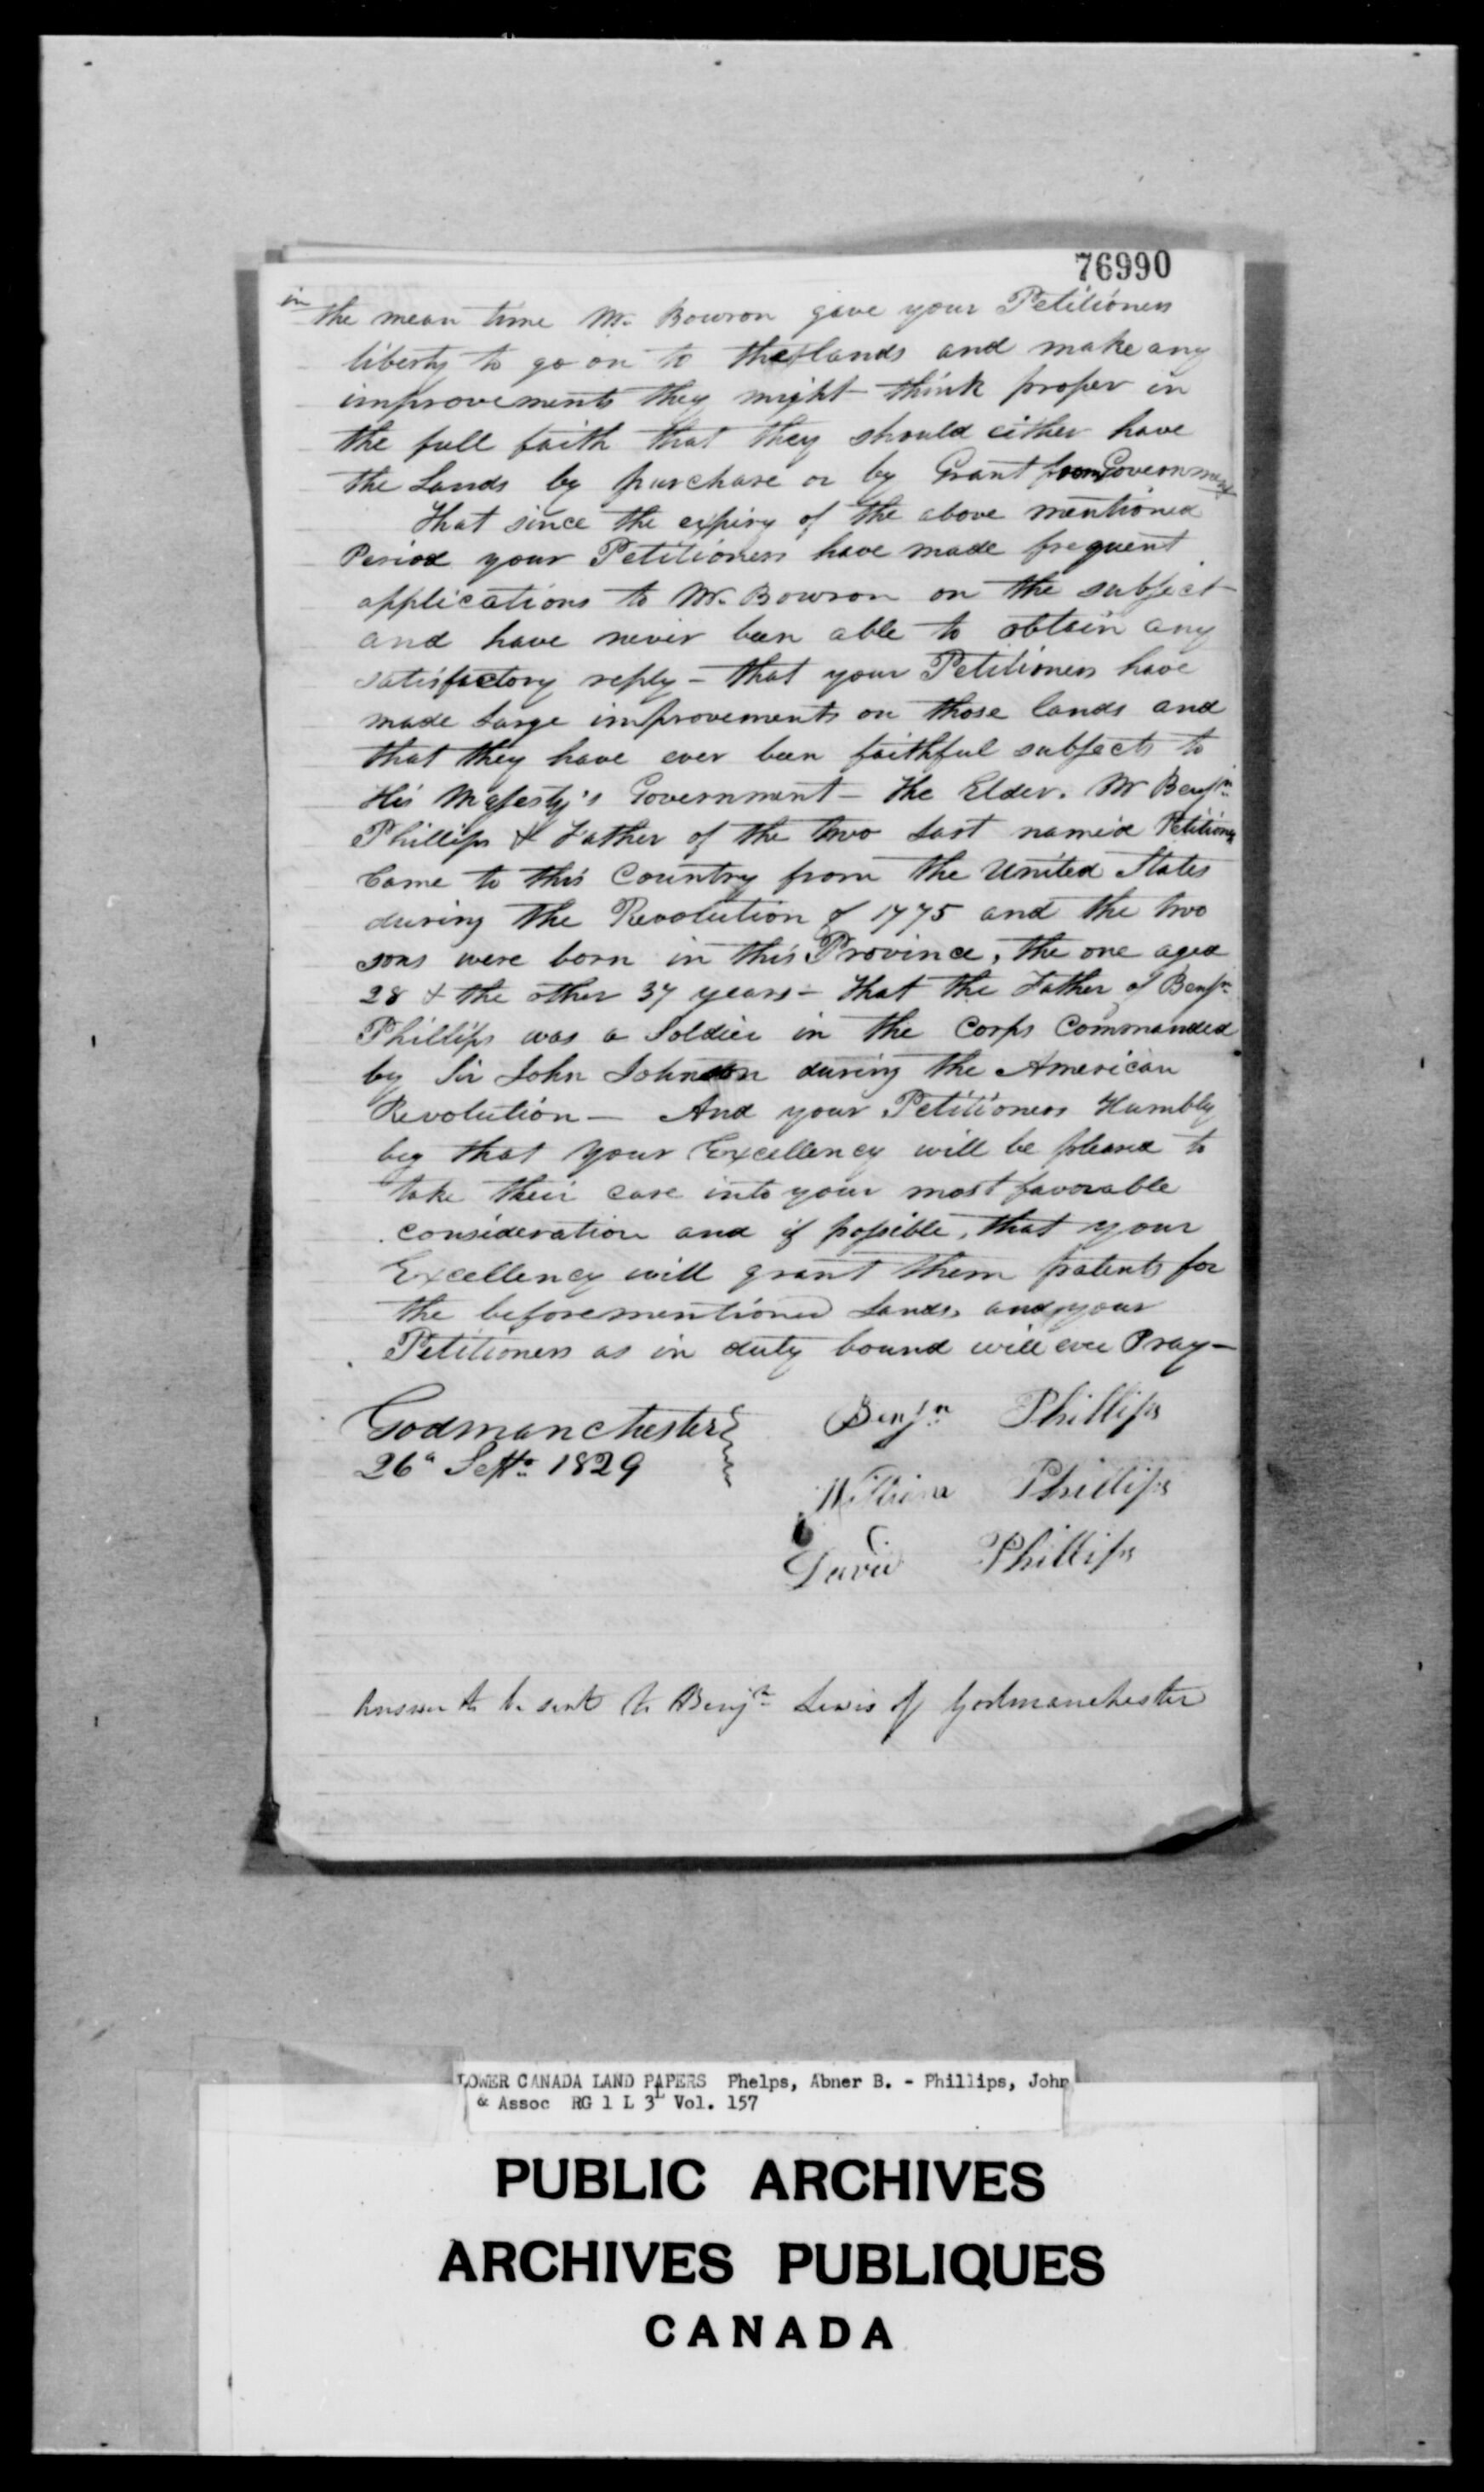 76990
in
the mean time Mr. Bowron gave your Petitioners
liberty to go on to the lands and make any
improvements they might think proper in
the full faith that they should either have
the Lands by purchase or by Grant from Government
That since the expiry of the above mentioned
Period your Petitioners have made frequent
applications to Mr. Bowron on the subject
and have never been able to obtain any
satisfactory reply - that your Petitioners have
made large improvements on those lands and
that they have ever been faithful subjects to
His Majesty's Government - the Elder. Mr Benjn
Phillips & Father of the two last named Petitioners
Came to this Country from the United States
during the Revolution of 1775 and the two
sons were born in this Province, the one aged
28 & the other 37 years - that the Father of Benjn
Phillips was a Soldier in the Corps Commanded
by Sir John Johnson during the American
Revolution — And your Petitioners Humbly
beg that your Excellency will be pleased to
take their case into your most favorable
consideration and if possible, that your
Excellency will grant them patents for
the beforementioned Lands, and your
Petitioners as in duty bound will ever Pray -
Godmanchester
26th Septr 1829
Benjn Phillips
William Phillips
David Phillips
Answer to be sent to Benjn Lewis of Godmanchester
LOWER CANADA LAND PAPERS Phelps, Abner B. - Phillips, John
& Assoc RG 1 L 3L Vol. 157
PUBLIC ARCHIVES
ARCHIVES PUBLIQUES
CANADA